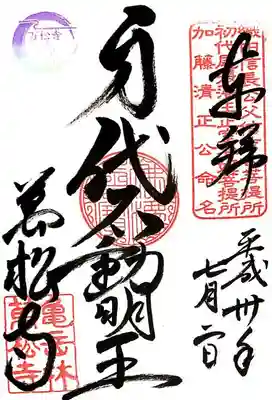 奉拝
織田信長公父菩提所
初代尾張藩主正室菩提所
加藤清正公命名
平成卅年
七月日
身代不動明王
万松寺
萬松寺
亀岳林
萬松寺